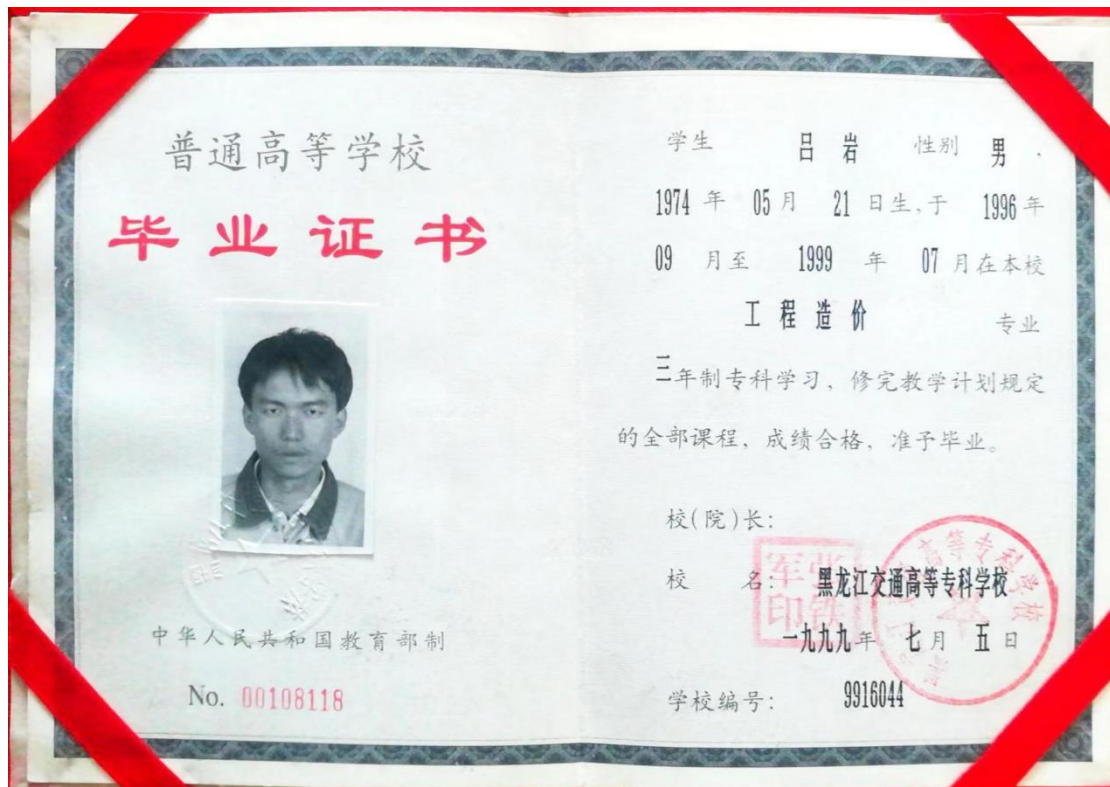 普通高等学校
毕业证书
中华人民共和国教育部制
No. 00108118
学生 吕岩 性别 男、
1974年 05月 21日生,于 1996年
09 月至 1999 年 07月在本校
工程造价 专业
三年制专科学习，修完教学计划规定
的全部课程，成绩合格，准予毕业。
校(院)长：
张铁军印
校 名： 黑龙江交通高等专科学校
一九九九年 七月 五日
学校编号： 9916044